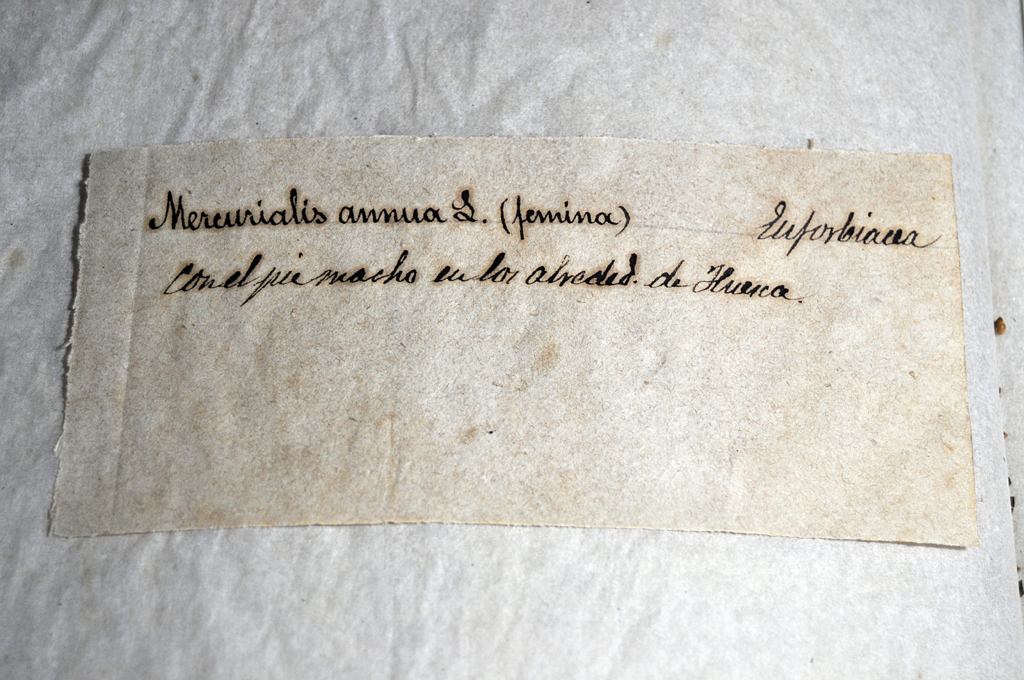 Mercurialis annua L. (femina) Euforbiacea
Con el pie macho en los alreded.s de Huesca.